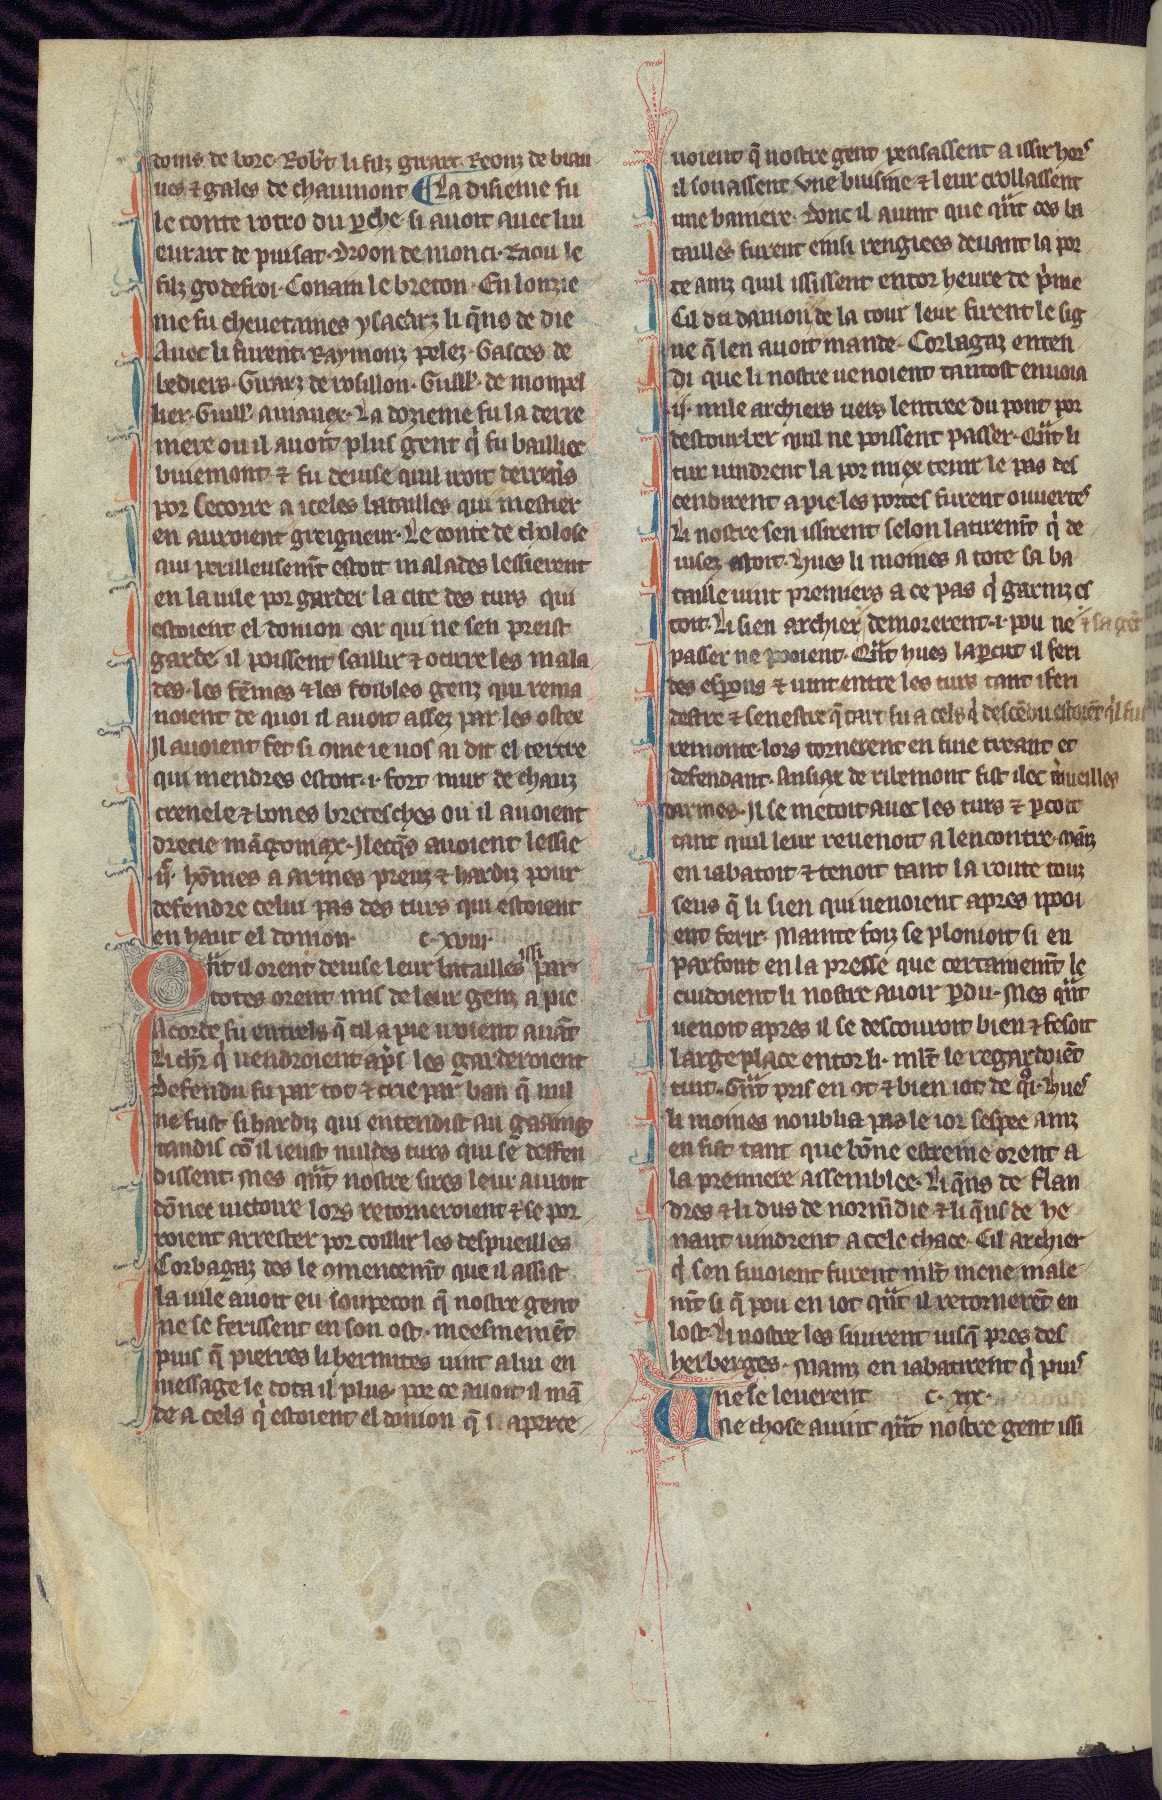 doins de borc. Rob't li filz girart. Reonz de biau
ues & gales de chaumont. La disieme fu
le conte rotro du p̲che. si auoit auec lui
eurart de puisat. Droon de monci. Raou le
filz godefroi. Conain le breton. En lonzie
me fu cheuetaines ysacarz li q̄ns de die
Auec li furent. Raymonz pelez. Gasces de
bediers. Girarz de rosillon. Guill'. de monpel
lier. Guill' amanex. La dozieme fu la derre
niere ou il auoit plus gent q̇ fu baillie
buiemont. & fu deuise quil iroit derreās
por secorre a iceles batailles qui mestier
en auroient greigneur. Le conte de tholose
qui perilleusem̄t estoit malades lessierent
en la uile por garder la cite des turs qui
estoient el donion car qui ne sen preist
garde il poissent saillir & ocirre les mala
des. les fēmes & les foibles genz qui rema
noient de quoi il auoit assez par les ostex
Il auoient fet si ome ie uos ai dit el tertre
qui mendres estoit .i. fort mur de chauz
crenele & bones bretesches ou il auoient
drecie māgoniax. Ilecq̄s auoient lessie
.ij.c hōmes a armes preuz & hardiz pour
defendre celui pas des turs qui estoient
en haut el donion c. xviii
Qn̄t il orent deuise leur batailles issi par
totes orent mis de leur genz a pie
Acorde fu entrels q̄ cil a pie iroient auāt
Li chr̄ q̇ uendroient ap̄s les garderoient
Defendu fu par tot & crie par ban q̄ nul
ne fust si hardiz qui entendist au gaaing
tandis cō il ieust nul des turs qui se deffen
dissent. Mes qn̄t nostre sires leur auroit
dōnee uictoire lors retorneroient & se por
roient arrester por coillir les despueilles
Corbagaz des le 9mencem̄t que il assist
la uile auoit eu soupecon q̄ nostre gent
ne se ferissent en son ost. meesmemēt
puis q̄ pierres li hermites uint a lui en
message le dota il plus. por ce auoit il mā
de a cels q̇ estoient el donion q̄ aperce
uoient q̄ nostre gent pensassent a issir hors
il sonassent vne buisine & leur crollassent
une baniere. Donc il auint que qn̄t ces ba
tailles furent einsi rengiees deuant la por
te ainz quil ississent entor heure de p̓me
Cil du danion de la tour leur firent le sig
ne q̄ len auoit mande. Corbagaz enten
di que li nostre uenoient tantost enuoia
.ij. mile archiers uers lentree du pont por
destourber quil ne poissent passer. Qn̄t li
tur uindrent la por miex tenir le pas des
cendirent a pie. les portes furent ouuertes
Li nostre sen issirent selon latirem̄t q̇ de
uisez estoit. hues li moines a tote sa ba
taille uint premiers a ce pas q̇ garniz es
toit. Li sien archier demorerent .i. pou ne & sa gēt
passer ne pooient. Qn̄t hues lap̲cut il feri
des esp̲ons & uint entre les turs tant i feri
destre & senestre q̄ tart fu a cels q̇ descēdu estoiēt q̇l fu
remonte. lors tornerent en fuie treant et
defendant. Ansiax de ribemont fist ilec m̓ueilles
darmes. Il se metoit auec les turs & p̲coit
tant quil leur reuenoit a lencontre. mainz
en iabatoit & tenoit tant la route touz
seus q̄ li sien qui uenoient apres ni pooi
ent ferir. Mainte foiz se plonioit si en
parfont en la presse que certainem̄t le
cuidoient li nostre auoir p̲du. Mes qn̄t
uenoit apres il se descouuroit bien & fesoit
large place entor li. ml̄t le regardoiēt
tuit. Gn̄t pris en ot & bien iot de q̇i. Hues
li moines noublia pas le ior sespee ainz
en fist tant que bōne estreine orent a
la premiere assemblee. Li q̄ns de flan
dres & li dus de norm̄die & li q̄ns de he
naut uindrent a cele chace. Cil archier
q̇ sen fuioient furent ml̄t mene male
m̄t si q̄ pou en iot qn̄t il retornerēt en
lost. Li nostre les siuirent iusq̄ pres des
herberges. Mainz en iabatirent q̇ puis
ne se leuerent c. xix.
Une chose auint qn̄t nostre gent issi